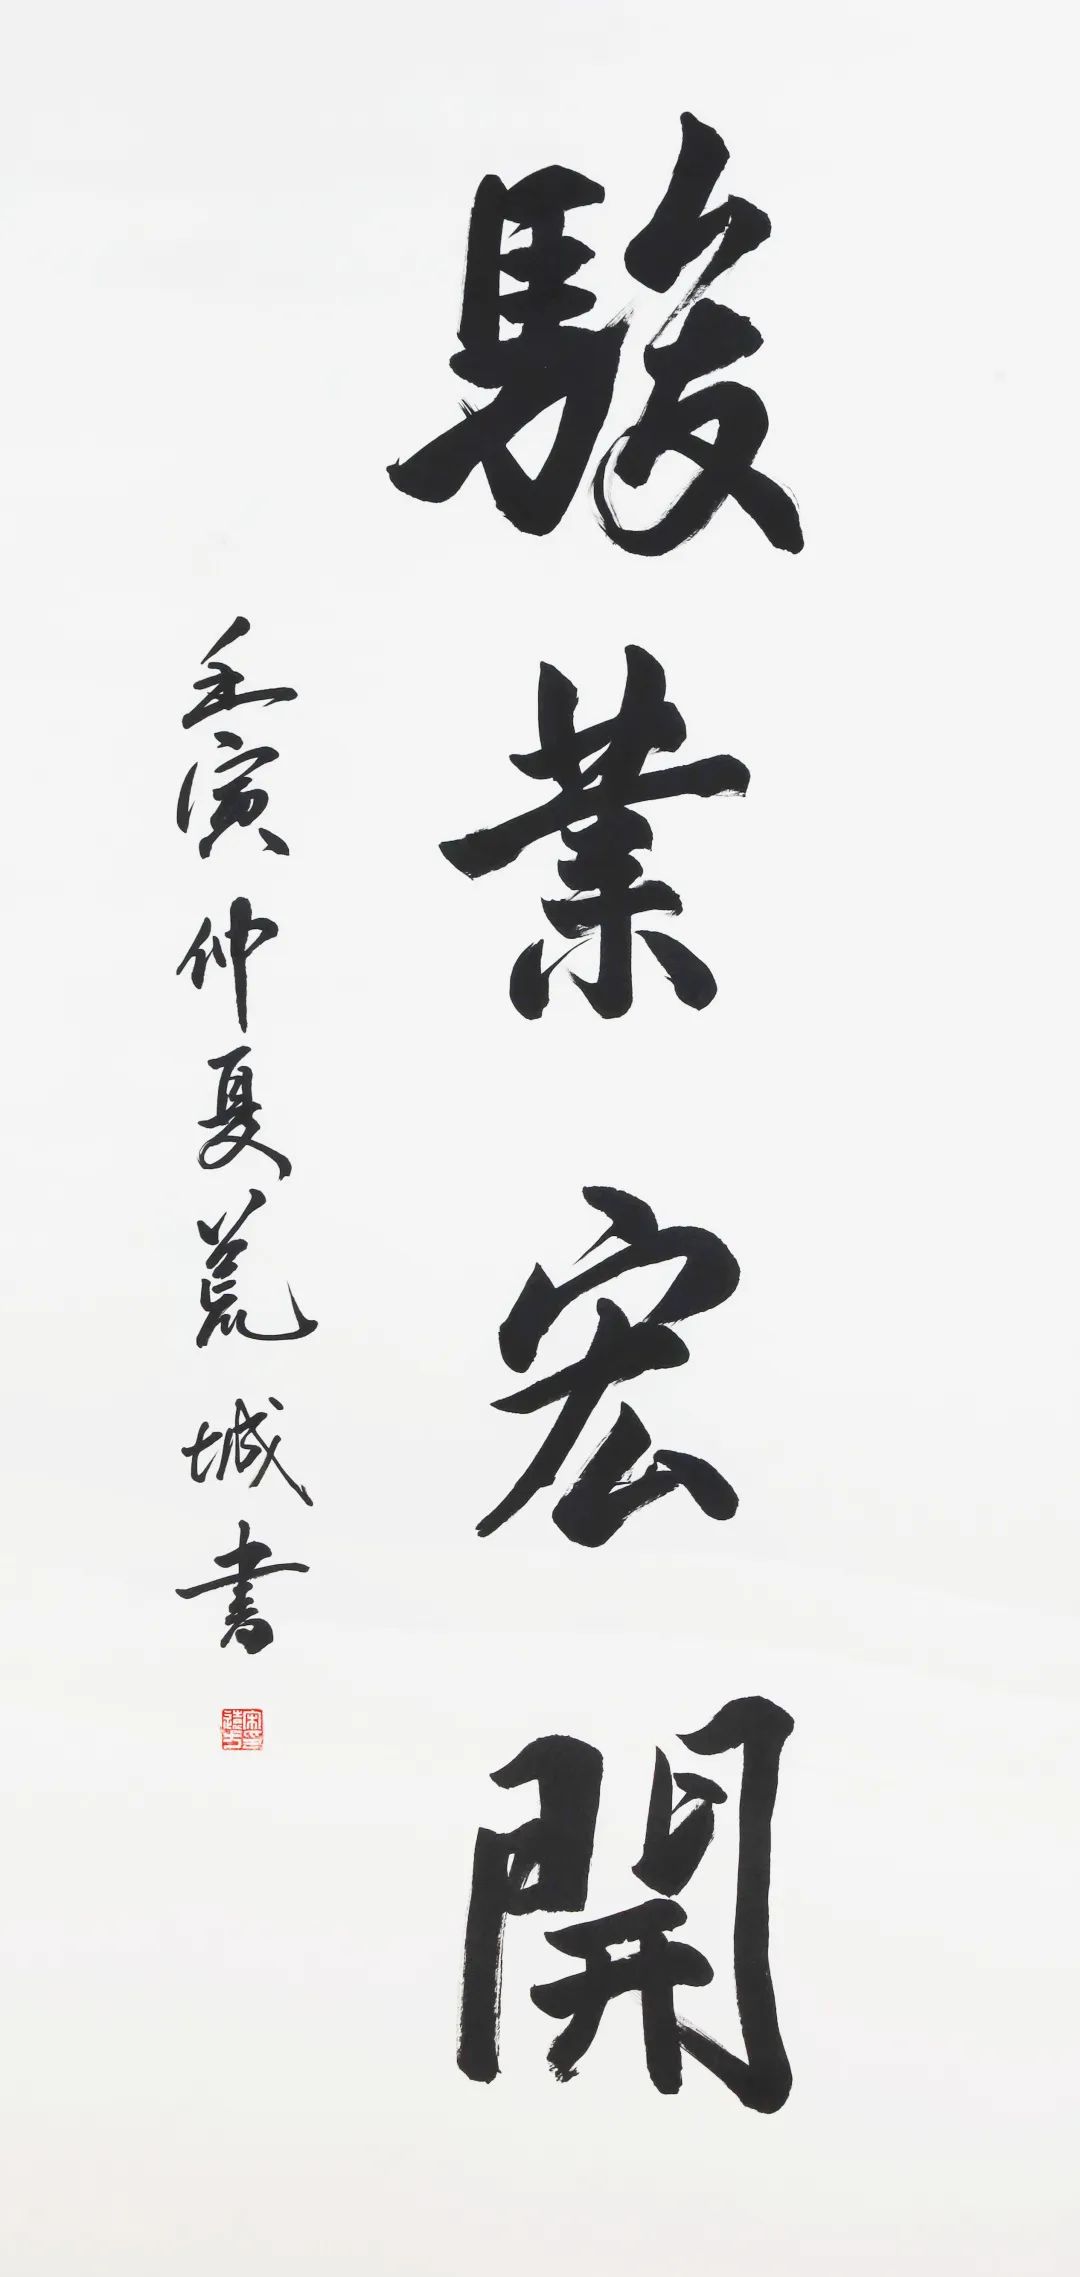 駿業宏開
壬寅仲夏荒城書